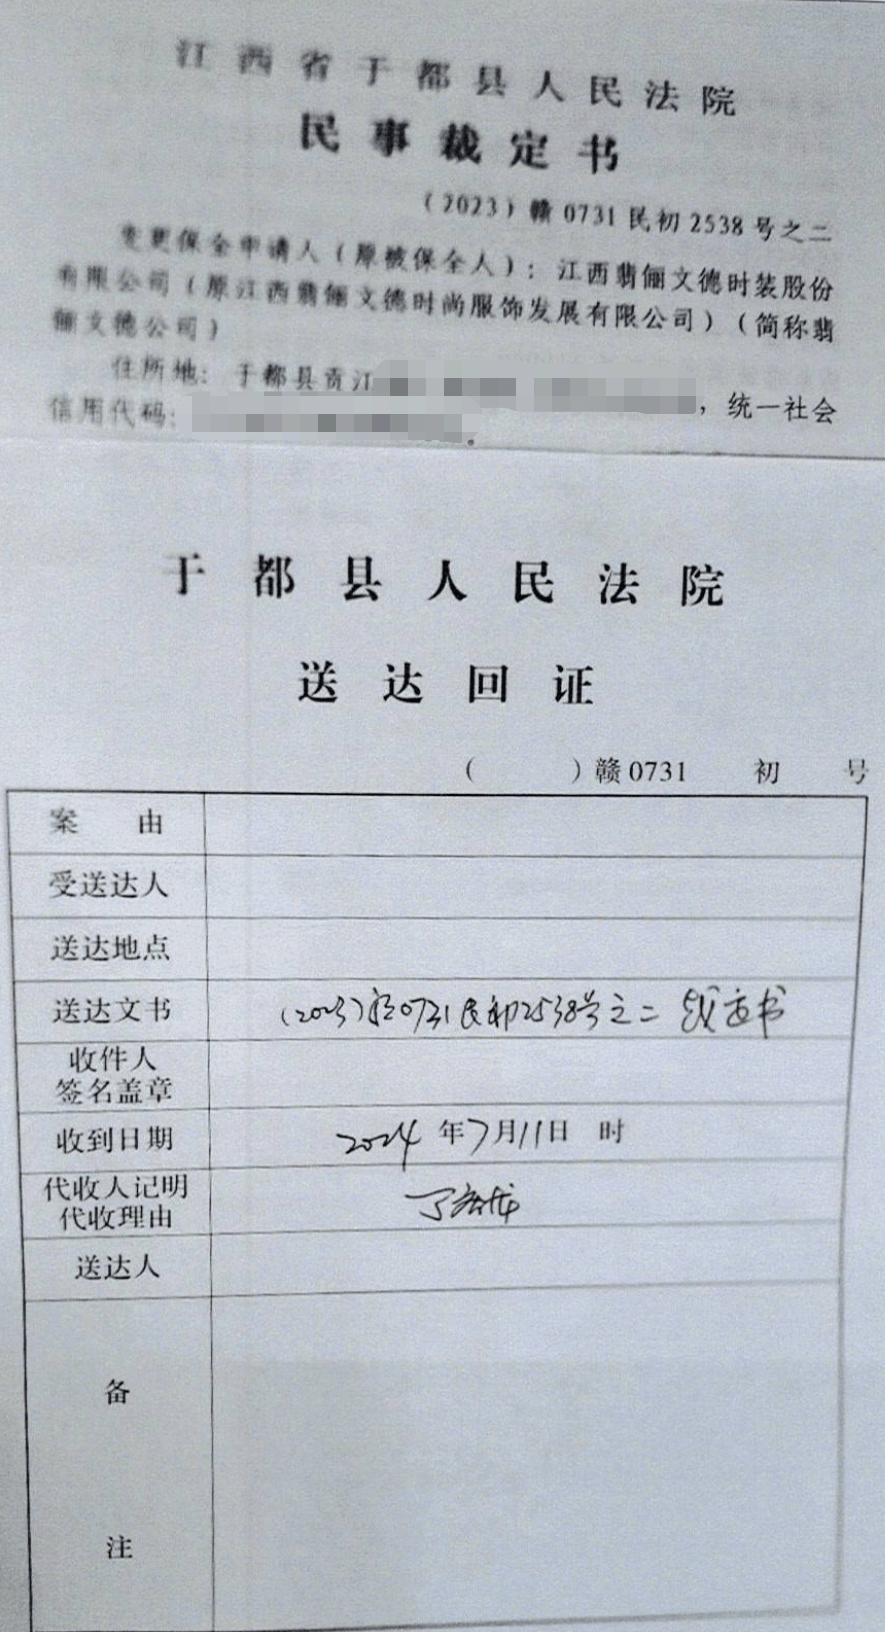 江西省于都县人民法院
民事裁定书
（2023）赣0731民初2538号之二
变更保全申请人（原被保全人）：江西翡俪文德时装股份
有限公司（原江西翡俪文德时尚服饰发展有限公司）（简称翡
俪文德公司）
住所地：于都县贡江
，统一社会
信用代码：
于都县人民法院
送达回证
（ ）赣0731 初 号
案 由
受送达人
送达地点
送达文书 （2023）赣0731民初2538号之二 裁定书
收件人
签名盖章
收到日期 2024年7月11日 时
代收人记明
代收理由
送达人
备
注